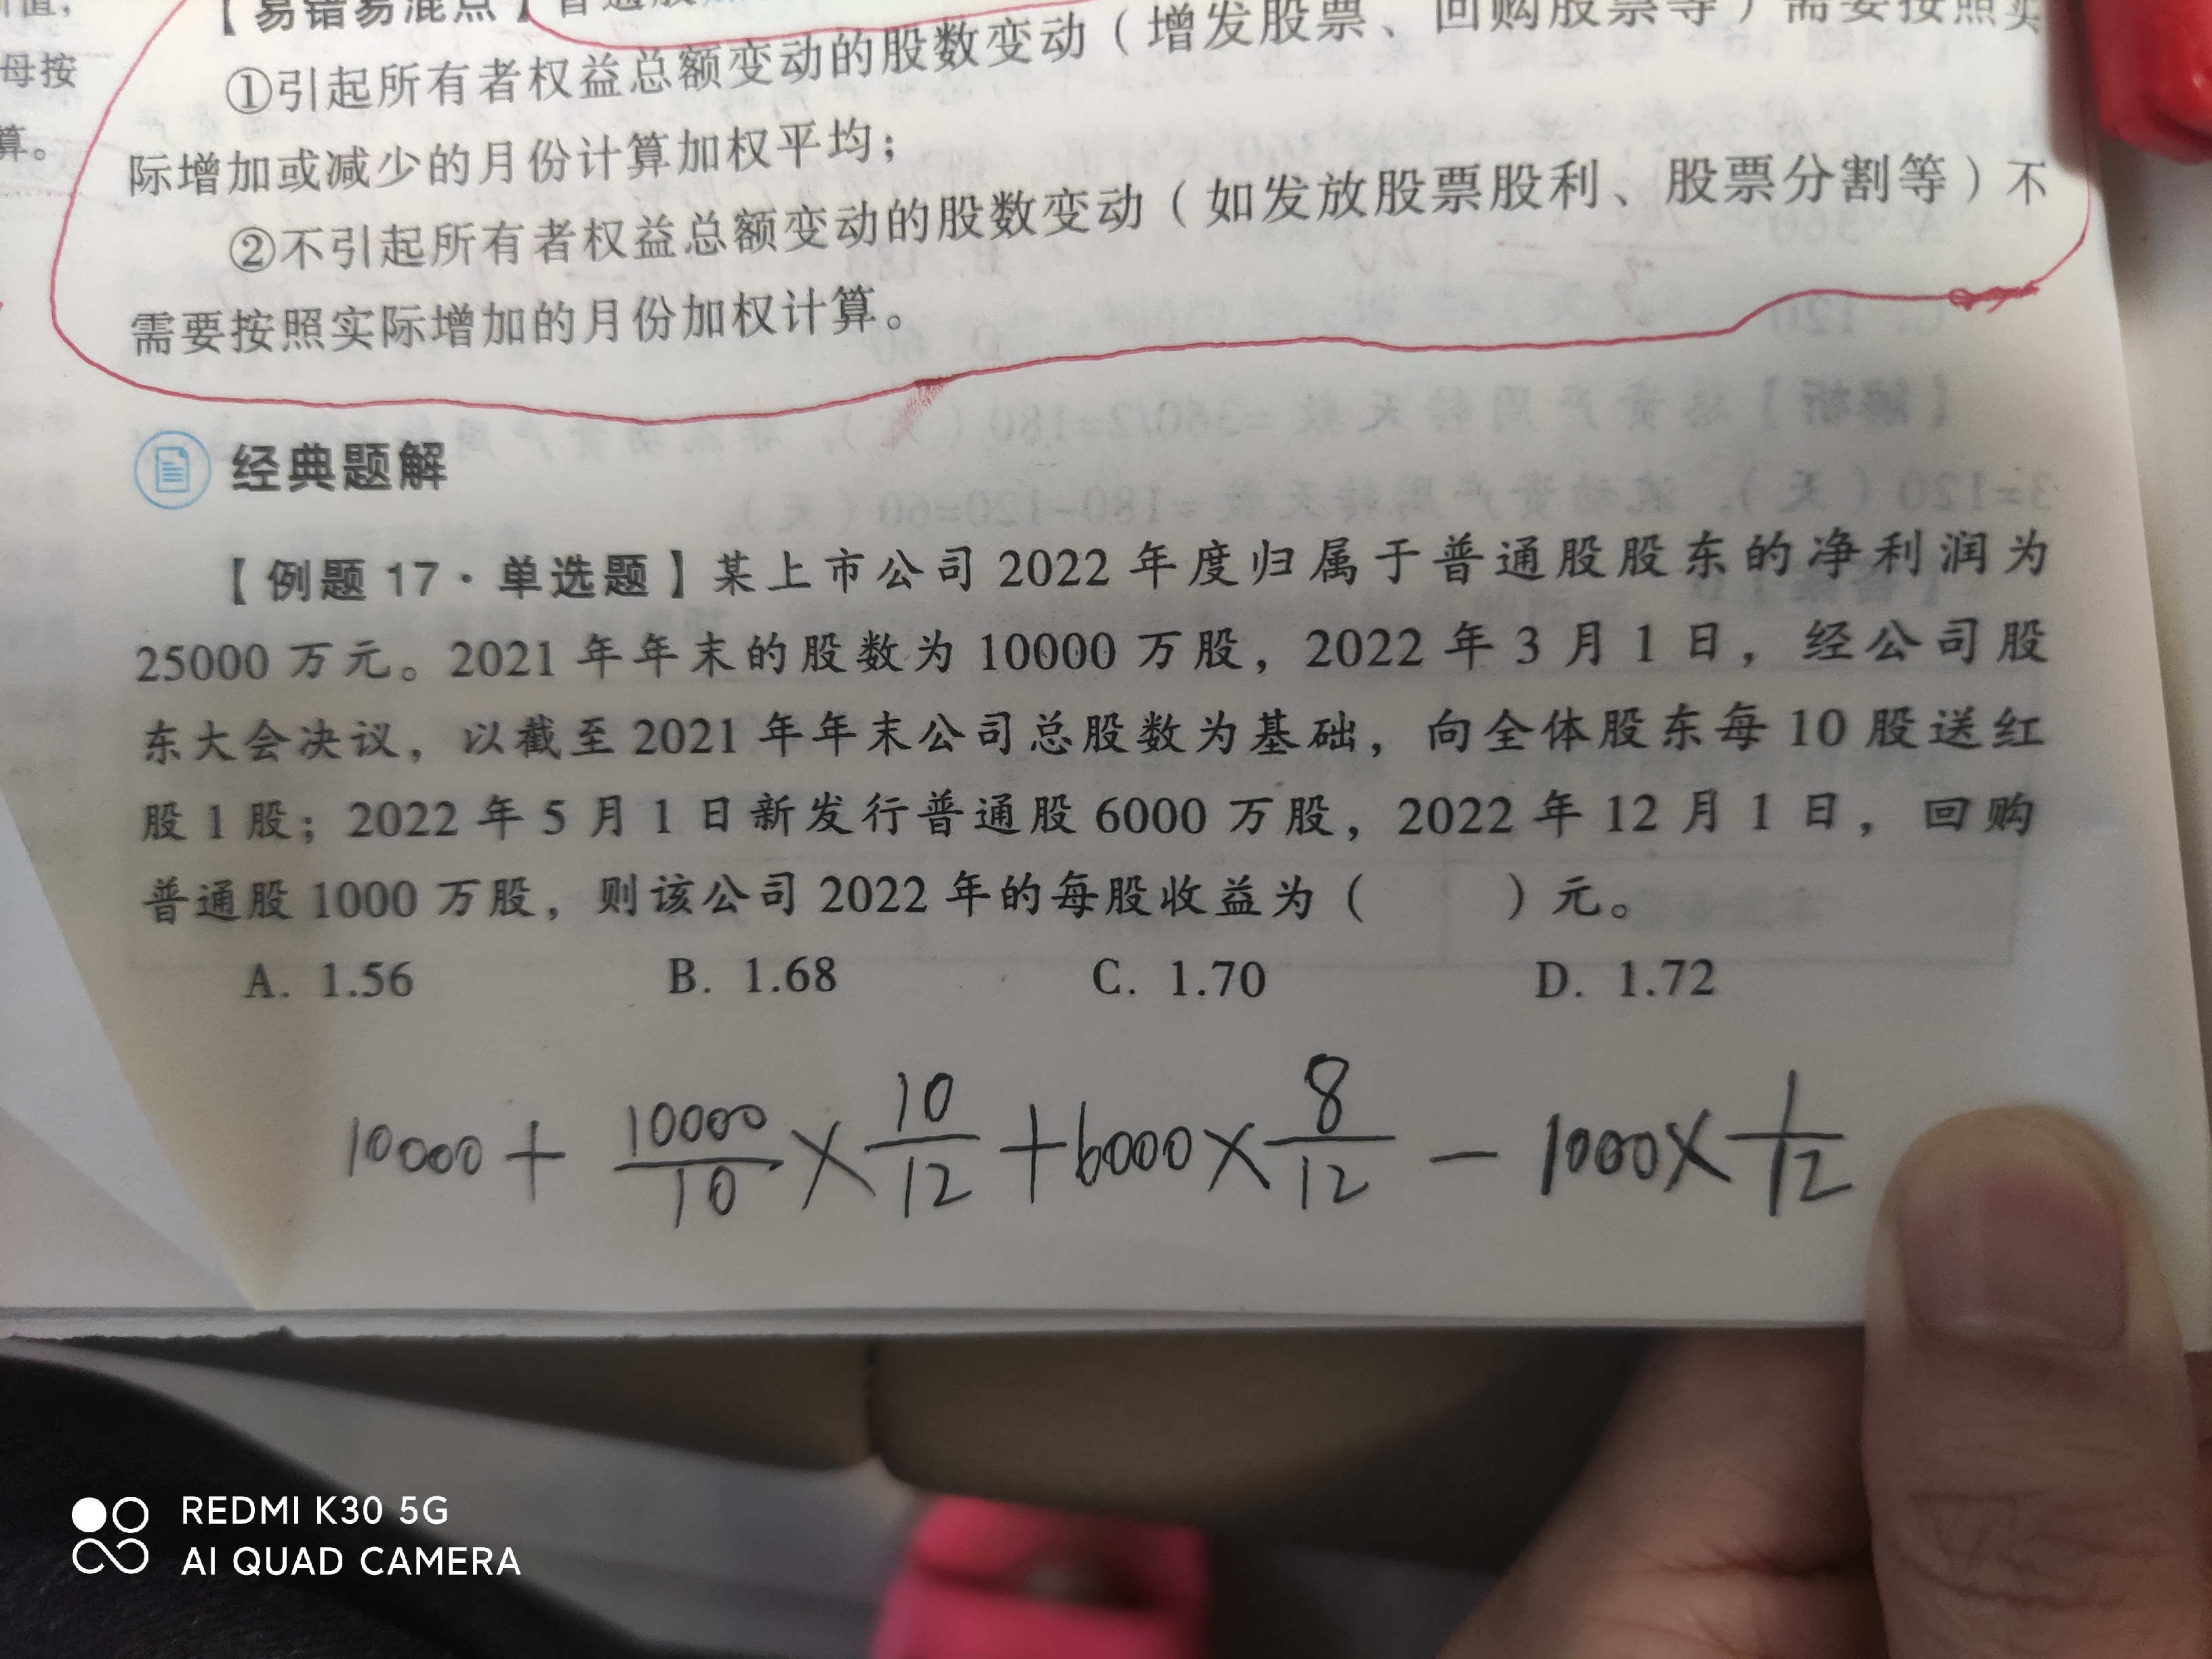 【易错易混点】普通股
①引起所有者权益总额变动的股数变动（增发股票、回购股票等）需要按照实
际增加或减少的月份计算加权平均；
②不引起所有者权益总额变动的股数变动（如发放股票股利、股票分割等）不
需要按照实际增加的月份加权计算。
母按
算。
经典题解
【例题 17·单选题】某上市公司 2022 年度归属于普通股股东的净利润为
25000 万元。2021 年年末的股数为 10000 万股，2022 年 3 月 1 日，经公司股
东大会决议，以截至 2021 年年末公司总股数为基础，向全体股东每 10 股送红
股 1 股；2022 年 5 月 1 日新发行普通股 6000 万股，2022 年 12 月 1 日，回购
普通股 1000 万股，则该公司 2022 年的每股收益为（ ）元。
A. 1.56 B. 1.68 C. 1.70 D. 1.72
10000 + 10000/10 × 10/12 + 6000 × 8/12 - 1000 × 1/12
REDMI K30 5G
AI QUAD CAMERA